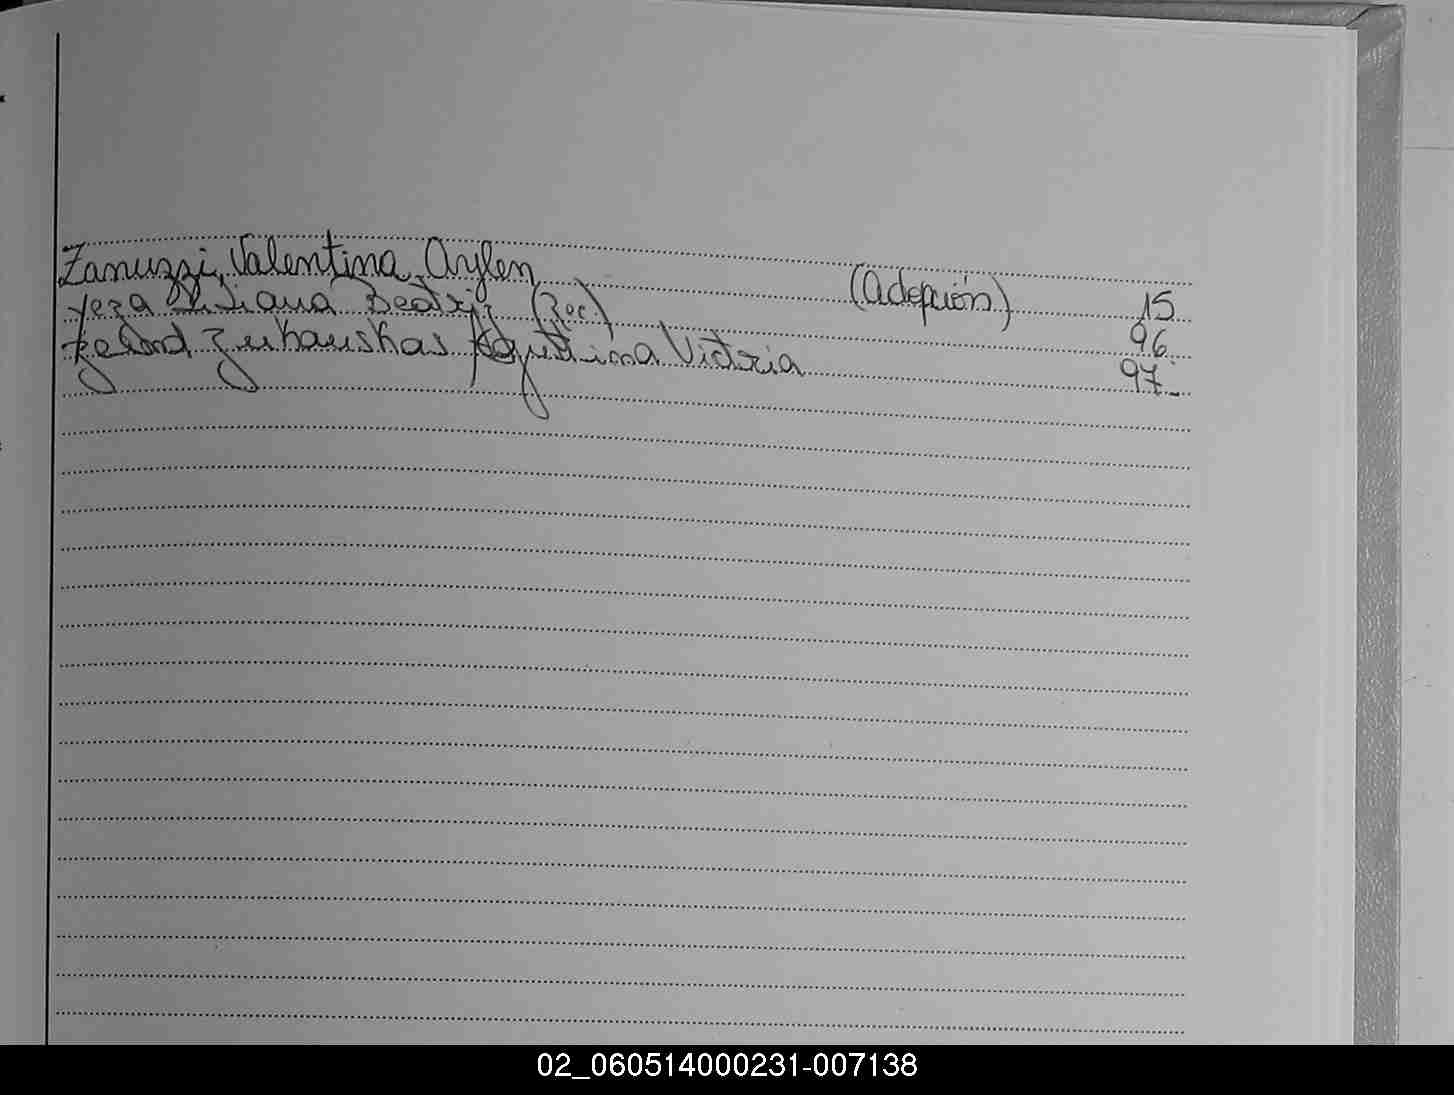 Zanuzzi, Valentina Aylen (Adopción) 15
Yeza Viviana Beatriz (Rec.) 96
Zukauskas Agustina Victoria 97
02_060514000231-007138